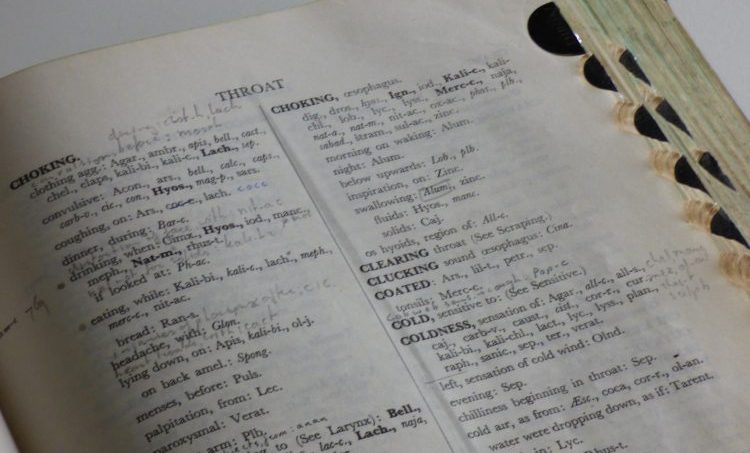 THROAT
CHOKING.
clothing agg.: Agar., ambr., apis, bell., cact.,
chel., elaps, kali-bi., kali-c., Lach., sep.
convulsive: Acon., ars., bell., calc., caps.,
carb-v., cic., con., Hyos., mag-p., sars.
coughing, on: Ars., coc-c., lach. coce
dinner, during: Bar-c.
drinking, when: Cimx., Hyos., iod., manc.,
meph., Nat-m., rhus-t.
if looked at: Ph-ac.
eating, while: Kali-bi., kali-c., lach., meph.,
merc-c., nit-ac.
bread: Ran-s.
headache, with: Glon.
lying down, on: Apis, kali-bi., ol-j.
on back amel.: Spong.
menses, before: Puls.
palpitation, from: Lec.
paroxysmal: Verat.
arm: Plb.
to (See Larynx): Bell.,
lac-c., Lach., naja,
CHOKING, œsophagus.
dig., dros., hyos., Ign., iod., Kali-c., kali-
chl., lob., lyc., lyss., Merc-c., naja,
nat-a., nat-m., nit-ac., ox-ac., phos., plb.,
sabad., stram., sul-ac., zinc.
morning on waking: Alum.
night: Alum.
below upwards: Lob., plb.
inspiration, on: Zinc.
swallowing: Alum., zinc.
fluids: Hyos., manc.
solids: Caj.
os hyoids, region of: All-c.
CLEARING throat (See Scraping.)
CLUCKING sound œsophagus: Cina.
COATED: Ars., lil-t., petr., sep.
tonsils: Merc-c.
COLD, sensitive to: (See Sensitive.)
COLDNESS, sensation of: Agar., all-c., all-s.,
caj., carb-v., caust., cist., cor-r., cur.,
kali-bi., kali-chl., lact., lyc., lyss., plan.,
raph., sanic., sep., ter., verat.
left, sensation of cold wind: Olnd.
evening: Sep.
chilliness beginning in throat: Sep.
cold air, as from: Æsc., coca, cor-r., ol-an.
water were dropping down, as if: Tarent.
in: Lyc.
Rhus-t.